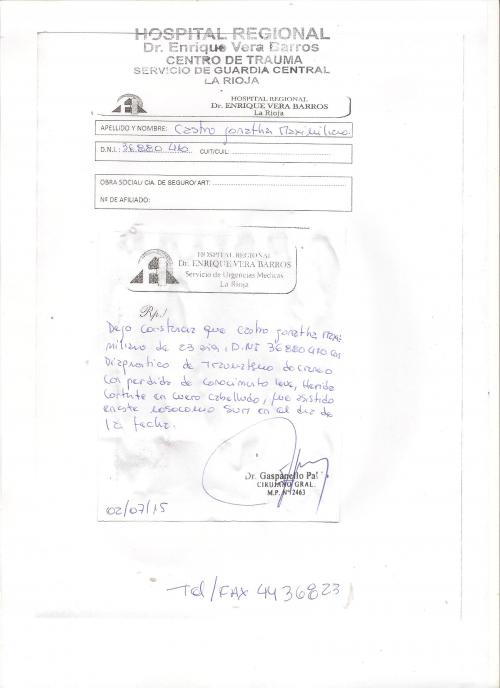 HOSPITAL REGIONAL
Dr. Enrique Vera Barros
CENTRO DE TRAUMA
SERVICIO DE GUARDIA CENTRAL
LA RIOJA
HOSPITAL REGIONAL
Dr. ENRIQUE VERA BARROS
La Rioja
APELLIDO Y NOMBRE: Castro Jonatha Maximiliano
D.N.I.: 36880410 CUIT/CUIL:
OBRA SOCIAL/ CIA. DE SEGURO/ ART:
Nº DE AFILIADO:
HOSPITAL REGIONAL
Dr. ENRIQUE VERA BARROS
Servicio de Urgencias Médicas
La Rioja
Rp./
Dejo constancia que Castro Jonatha Maxi
miliano de 23 D.NI 36880410 con
Diagnostico de Traumatismo de craneo
con perdida de conocimiento leve, Herida
cortante en cuero cabelludo, fue asistido
en este nosocomio en el dia de
la fecha.
Dr. Gaspanello
CIRUJANO GRAL.
M.P. Nº 2463
02/07/15
Tel/FAX 4436823